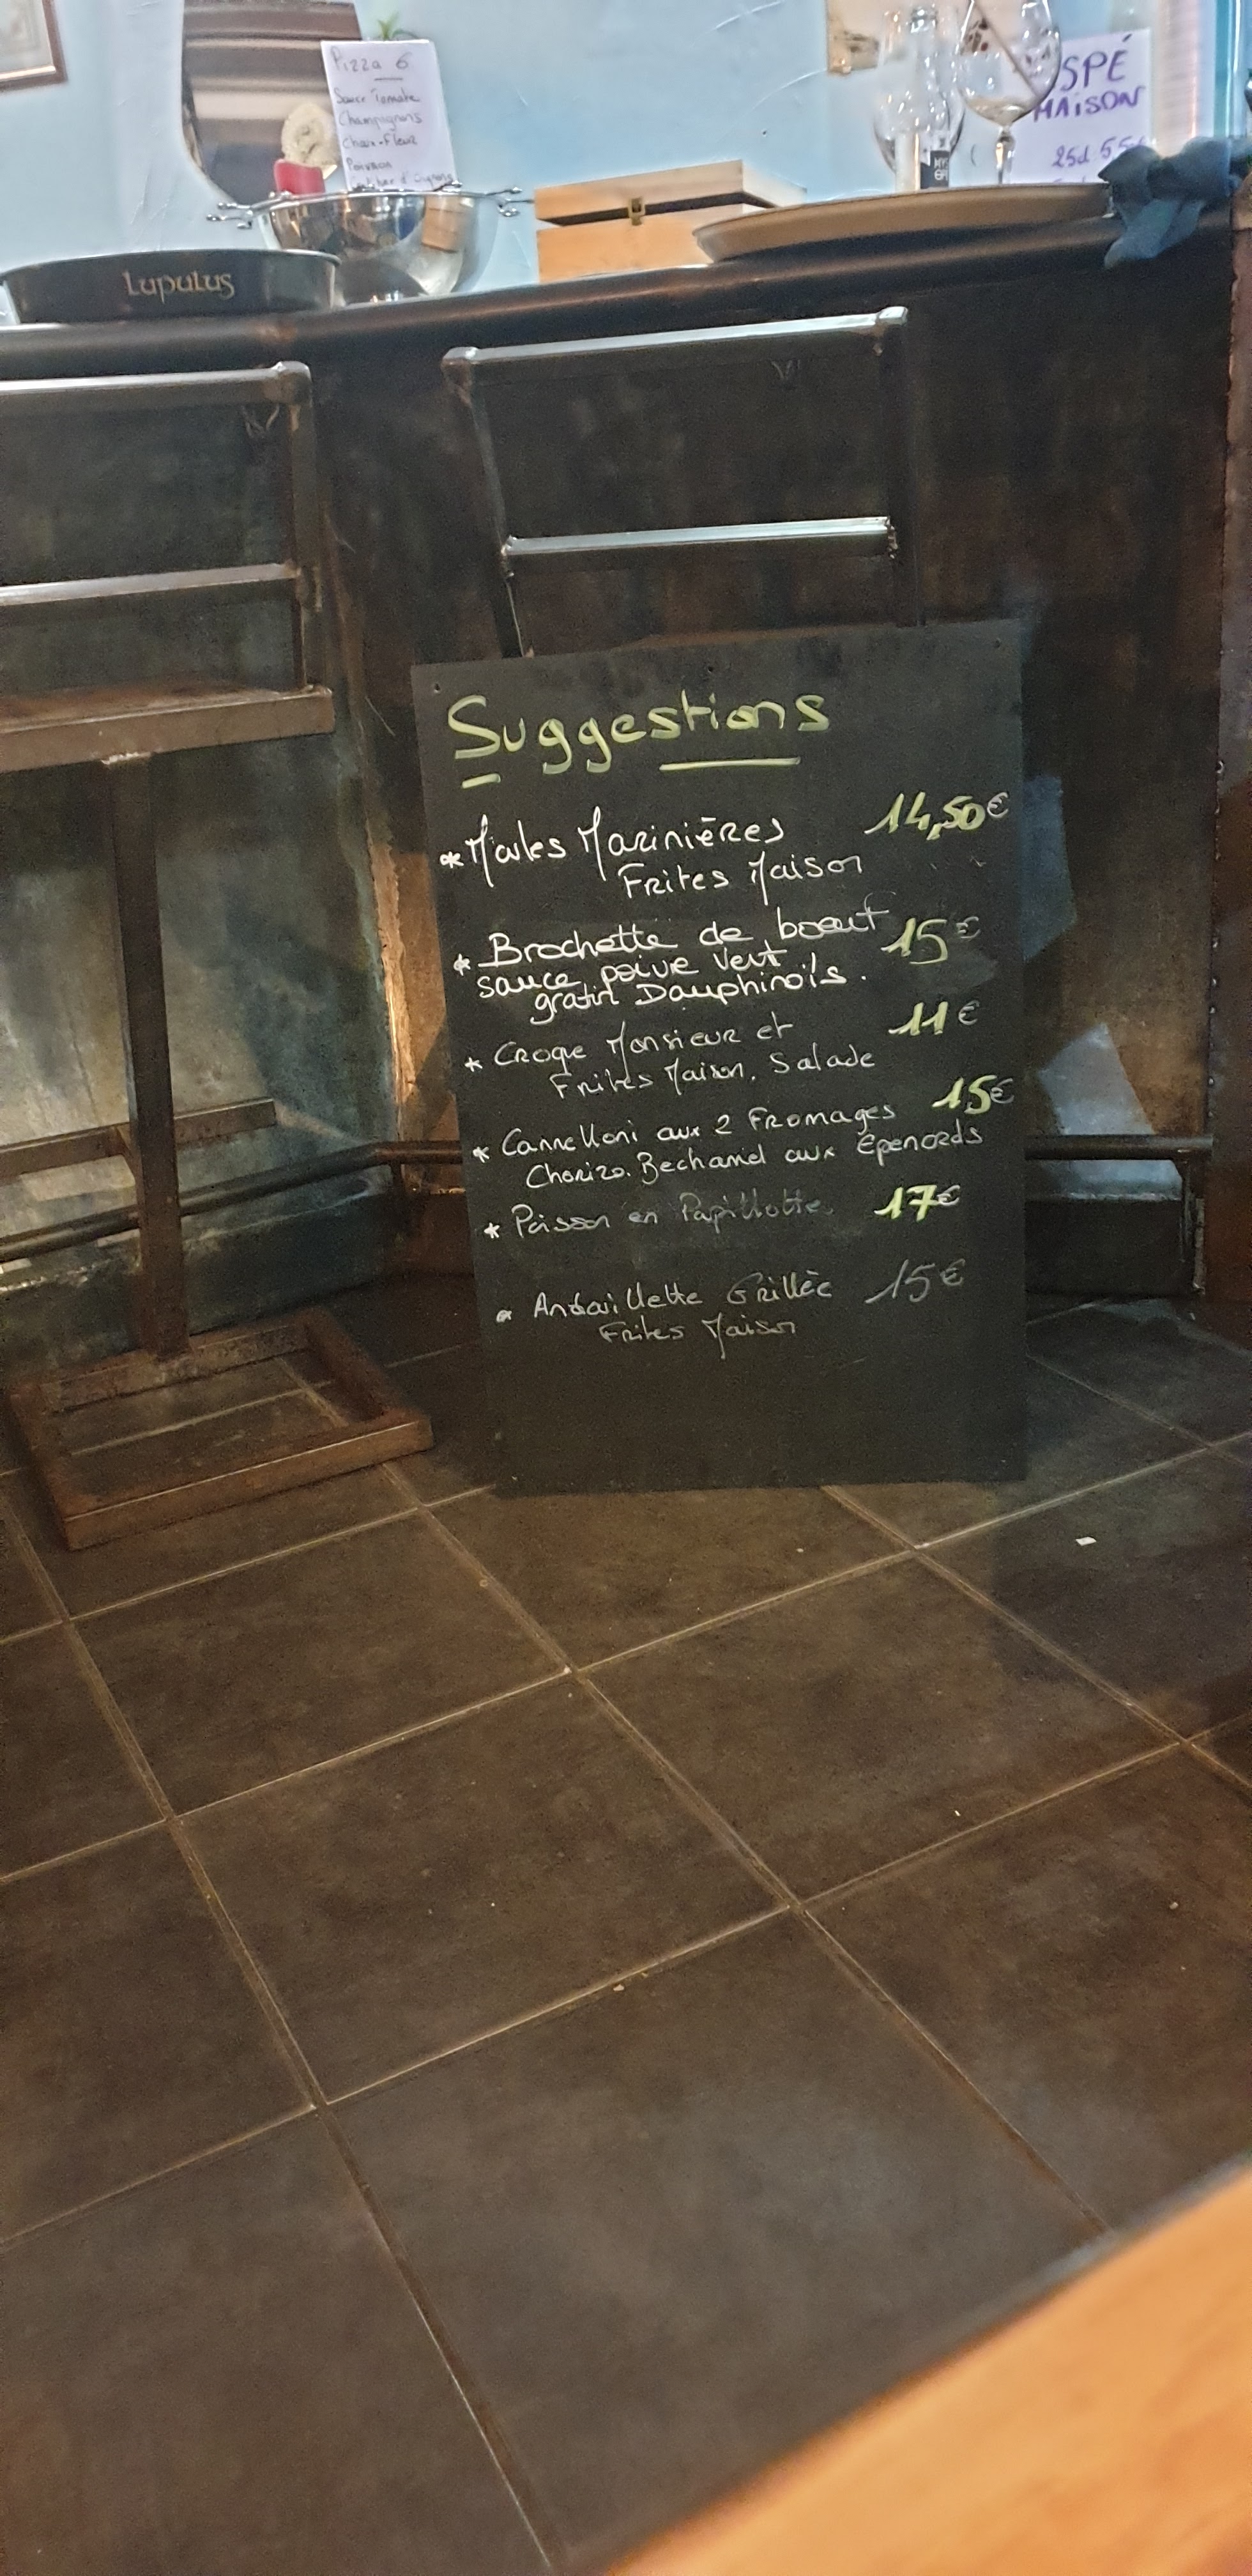 Pizza 6
Sauce Tomate
Champignons
Chou-Fleur
Poivron
SPÉ
MAISON
25cl 5.5€
Lupulus
Suggestions
* Moules Marinières 14,50€
Frites Maison
* Brochette de boeuf 15€
sauce poivre vert
gratin Dauphinois.
* Croque Monsieur et 11€
Frites Maison, Salade
* Cannelloni aux 2 Fromages 15€
Chorizo. Bechamel aux Epenards
* Poisson en Papillotte 17€
* Andouillette Grillée 15€
Frites Maison